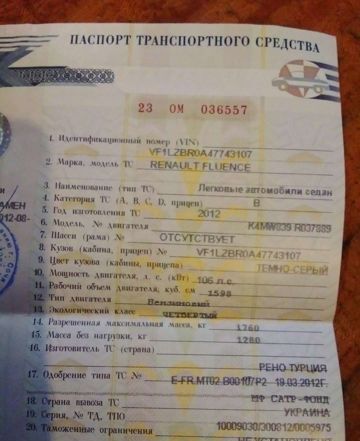 ПАСПОРТ ТРАНСПОРТНОГО СРЕДСТВА
23 ОМ 036557
1. Идентификационный номер (VIN) VF1LZBR0A47743107
2. Марка, модель ТС RENAULT FLUENCE
3. Наименование (тип ТС) Легковые автомобили седан
4. Категория ТС (А, В, С, D, прицеп) B
5. Год изготовления ТС 2012
6. Модель, № двигателя K4MW839 R037889
7. Шасси (рама) № ОТСУТСТВУЕТ
8. Кузов (кабина, прицеп) № VF1LZBR0A47743107
9. Цвет кузова (кабины, прицепа) ТЕМНО-СЕРЫЙ
10. Мощность двигателя, л. с. (кВт) 106 л.с.
11. Рабочий объем двигателя, куб. см 1598
12. Тип двигателя Бензиновый
13. Экологический класс ЧЕТВЕРТЫЙ
14. Разрешенная максимальная масса, кг 1760
15. Масса без нагрузки, кг 1280
16. Изготовитель ТС (страна)
РЕНО ТУРЦИЯ
17. Одобрение типа ТС № E-FR.MT02.B00107P2 19.03.2012г.
САТР-ФОНД
18. Страна вывоза ТС УКРАИНА
19. Серия, № ТД, ТПО 10009030/300812/0005975
20. Таможенные ограничения
АМЕН
2012-08-